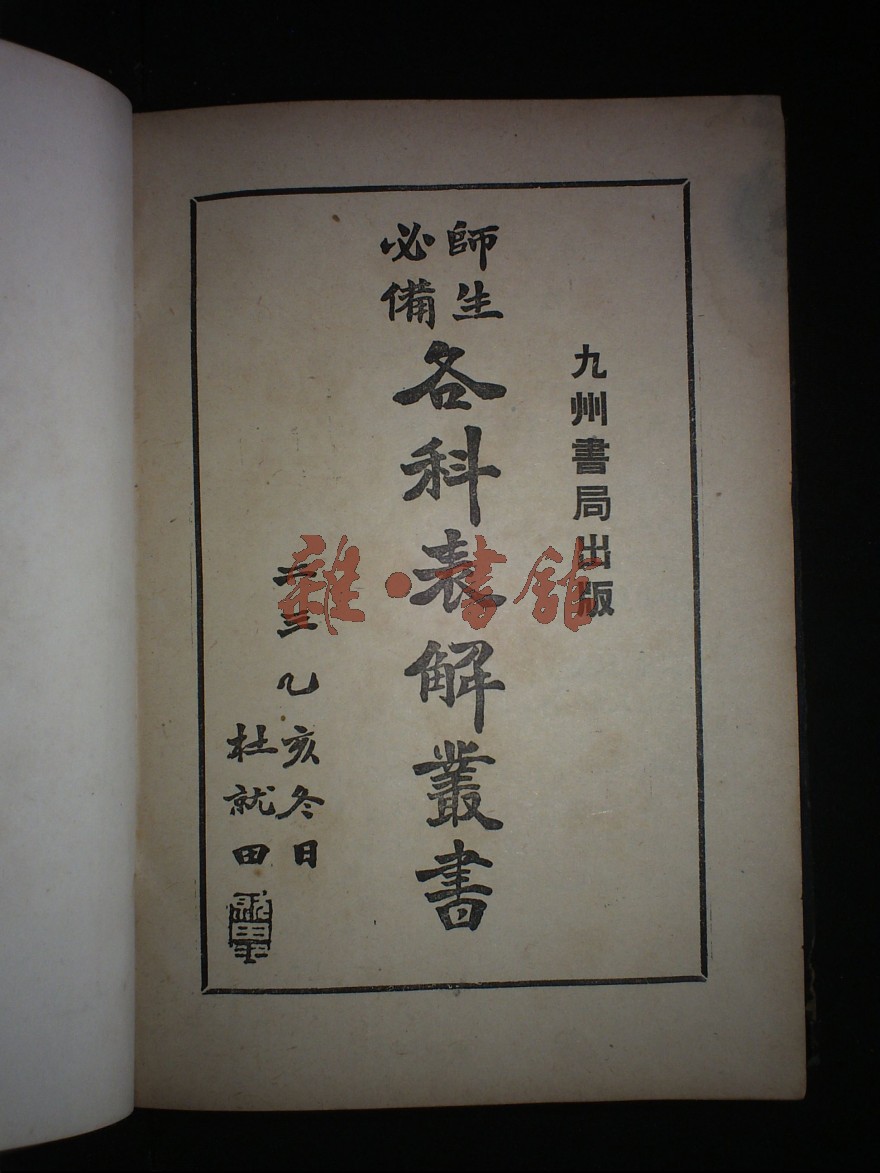 九州書局出版
師生
必備
各科表解叢書
二三乙亥冬日
杜就田
雜·書館